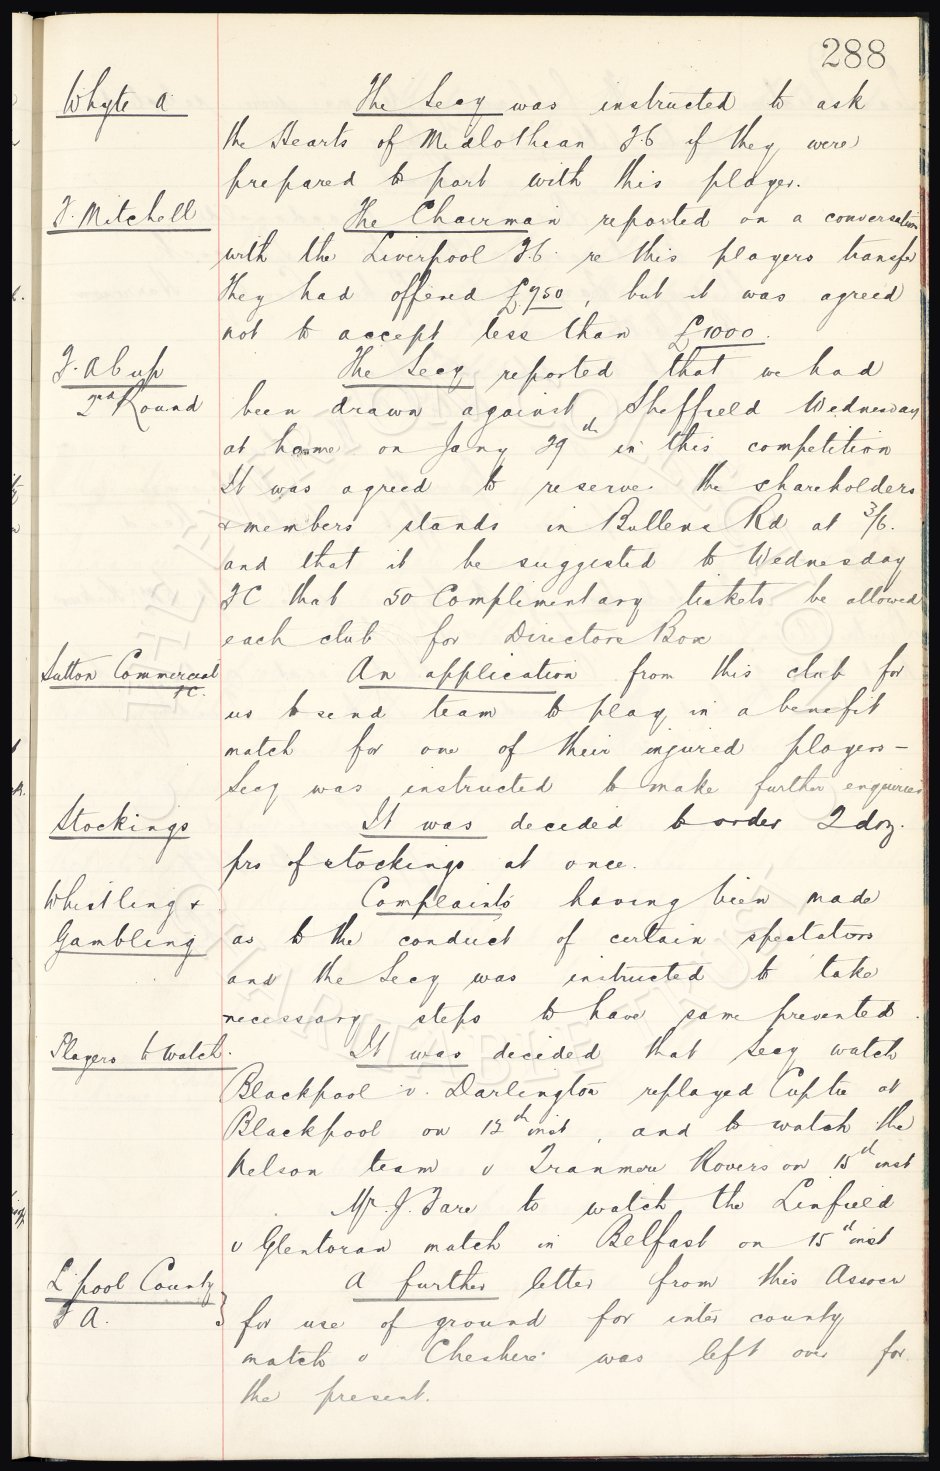 288
Whyte A.
The Secy was instructed to ask
the Hearts of Midlothian F.C if they were
prepared to part with this player.
F. Mitchell
The Chairman reported on a conversation
with the Liverpool F.C. re this players transfer
They had offered £750, but it was agreed
not to accept less than £1000.
F. A Cup
2nd Round
The Secy reported that we had
been drawn against Sheffield Wednesday
at home on Jany 29th in this competition
It was agreed to reserve the shareholders
& members stands in Bullens Rd at 3/6.
and that it be suggested to Wednesday
FC that 50 Complimentary tickets be allowed
each club for Directors Box
Sutton Commercial
FC.
An application from this club for
us to send team to play in a benefit
match for one of their injured players –
Secy was instructed to make further enquiries
Stockings
It was decided to order 2 doz.
prs of stockings at once.
Whistling &
Gambling
Complaints having been made
as to the conduct of certain spectators
and the Secy was instructed to take
necessary steps to have same prevented.
Players to watch.
It was decided that Secy watch
Blackpool v. Darlington replayed Cuptie at
Blackpool on 12th inst, and to watch the
Nelson team v Tranmere Rovers on 15th inst
Mr. J. Fare to watch the Linfield
v Glentoran match in Belfast on 15th inst
L'pool County
F A.
A further letter from this Assocn
for use of ground for inter county
match v Cheshire was left over for
the present.